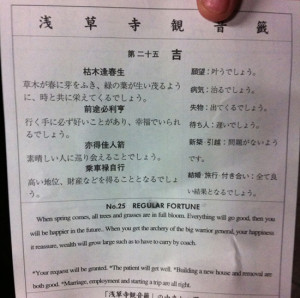 浅草寺観音籤
第二十五 吉
枯木逢春生
草木が春に芽をふき、緑の葉が生い茂るよう
に、時と共に栄えてくるでしょう。
前途必利亨
行く手に必ず好いことがあり、幸福でいられ
るでしょう。
亦得佳人箭
素晴しい人に巡り会えることでしょう。
乗車禄自行
高い地位、財産などを得ることとなるでしょ
う。
願望:叶うでしょう。
病気:治るでしょう。
失物:出てくるでしょう。
待ち人:遅いでしょう。
新築・引越:問題がないよう
です。
結婚・旅行・付き合い:全て良
い結果となるでしょう。
No.25 REGULAR FORTUNE
When spring comes, all trees and grasses are in full bloom. Everything will go good, then you
will be happier in the future. When you get the archery of the big warrior general, your happiness
it reassure, wealth will grow large such as to have to carry by coach.
*Your request will be granted. *The patient will get well. *Building a new house and removal are
both good. *Marriage, employment and starting a trip are all right.